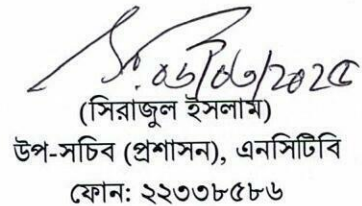 ০৬/০৩/২০২৫
(সিরাজুল ইসলাম)
উপ-সচিব (প্রশাসন), এনসিটিবি
ফোন: ২২৩৩৮৫৮৬